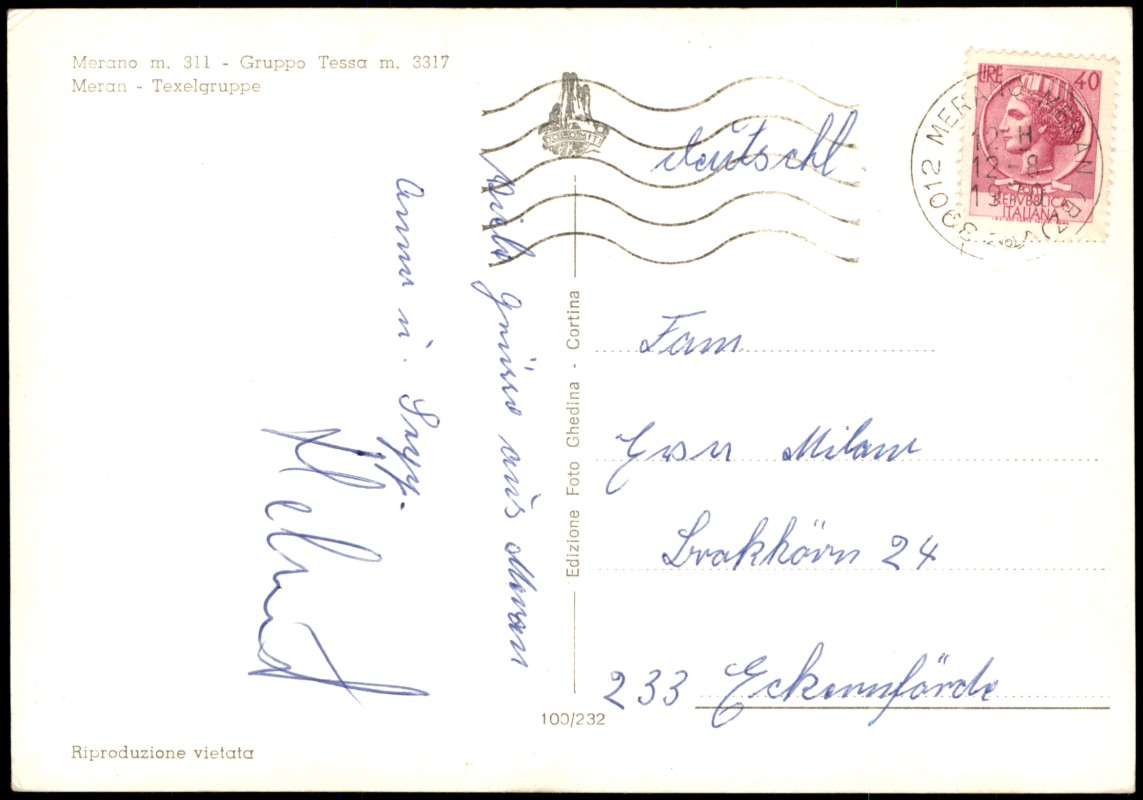 Merano m. 311 - Gruppo Tessa m. 3317
Meran - Texelgruppe
LIRE 40
REPVBBLICA
ITALIANA
39012 MERANO - MERAN
12-8
Deutschl.
Viele Grüsse aus Meran
Anna u. Sepp.
Helmut
Edizione Foto Ghedina - Cortina
Fam
Milam
Brakhörn 24
233 Eckernförde
100/232
Riproduzione vietata